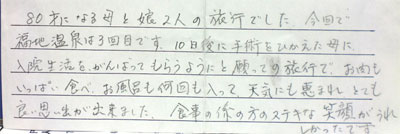 80才になる母と娘2人の旅行でした。今回で
福地温泉は3回目です。10日後に手術をひかえた母に
入院生活をがんばってもらうようにと願っての旅行で、お肉も
いっぱい食べ、お風呂も何回も入って、天気にも恵まれとても
良い思い出が出来ました。食事の係の方のステキな笑顔がうれ
しかったです